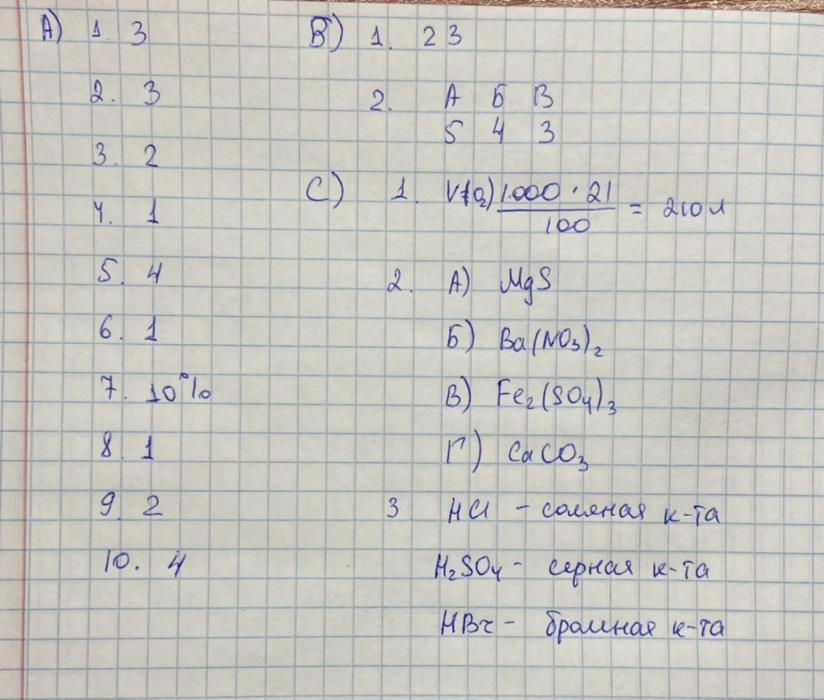 А) 1. 3
2. 3
3. 2
4. 1
5. 4
6. 1
7. 10%
8. 1
9. 2
10. 4
В) 1. 23
2. А Б В
5 4 3
С) 1. V(O₂) 1000 · 21 / 100 = 210 л
2. А) MgS
Б) Ba(NO₃)₂
В) Fe₂(SO₄)₃
Г) CaCO₃
3 HCl - соляная к-та
H₂SO₄ - серная к-та
HBr - бромная к-та